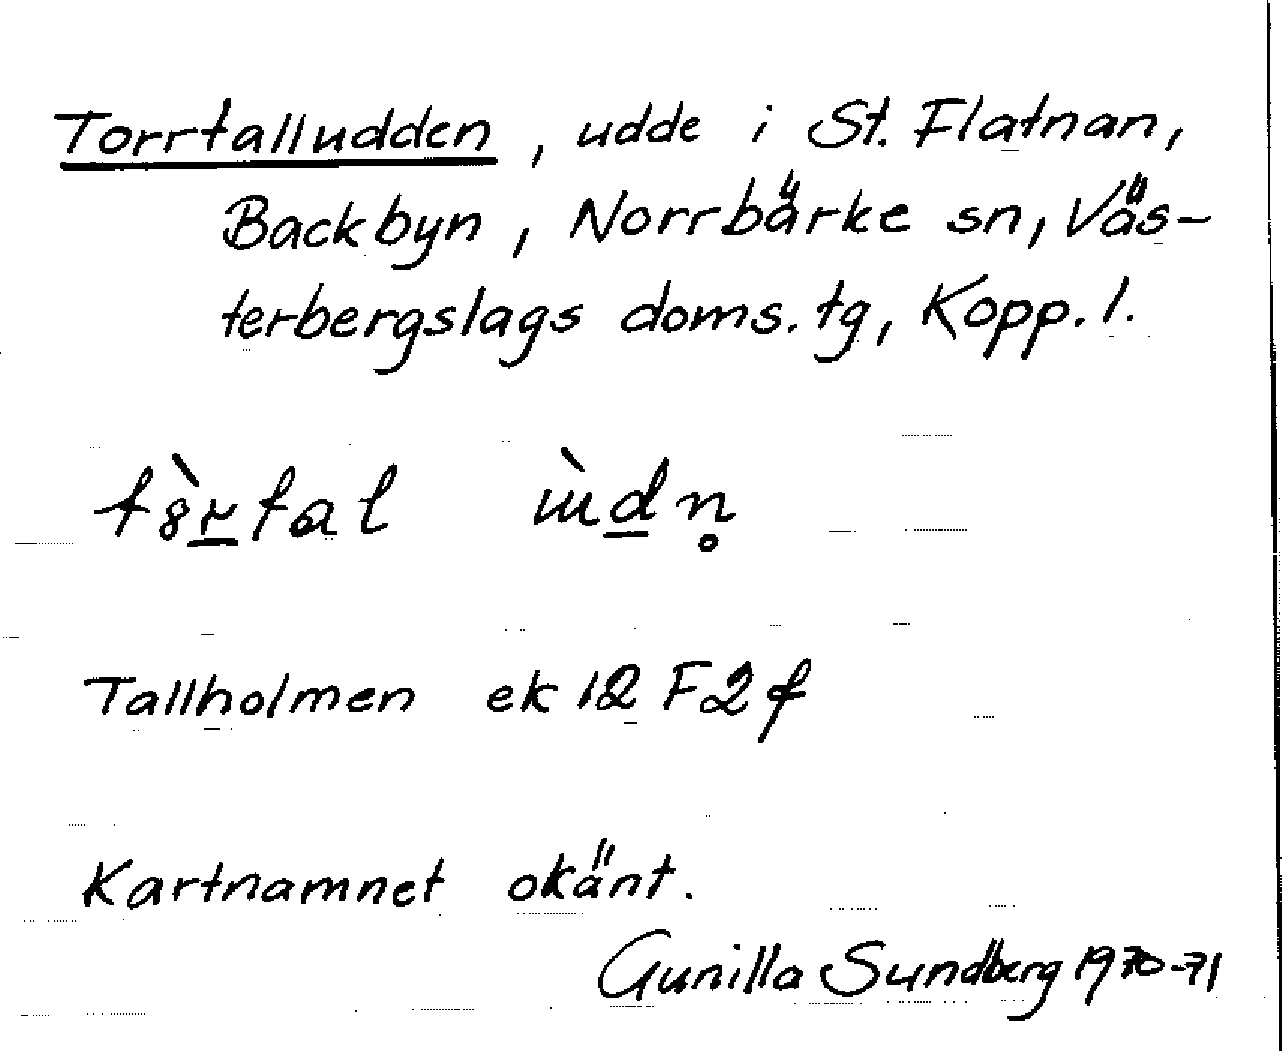 Torrtalludden, udde i St. Flatnan,
Backbyn, Norrbärke sn, Väs-
terbergslags doms. tg, Kopp. l.
Tallholmen ek 12 F 2 f
Kartnamnet okänt.
Gunilla Sundberg 1970-71